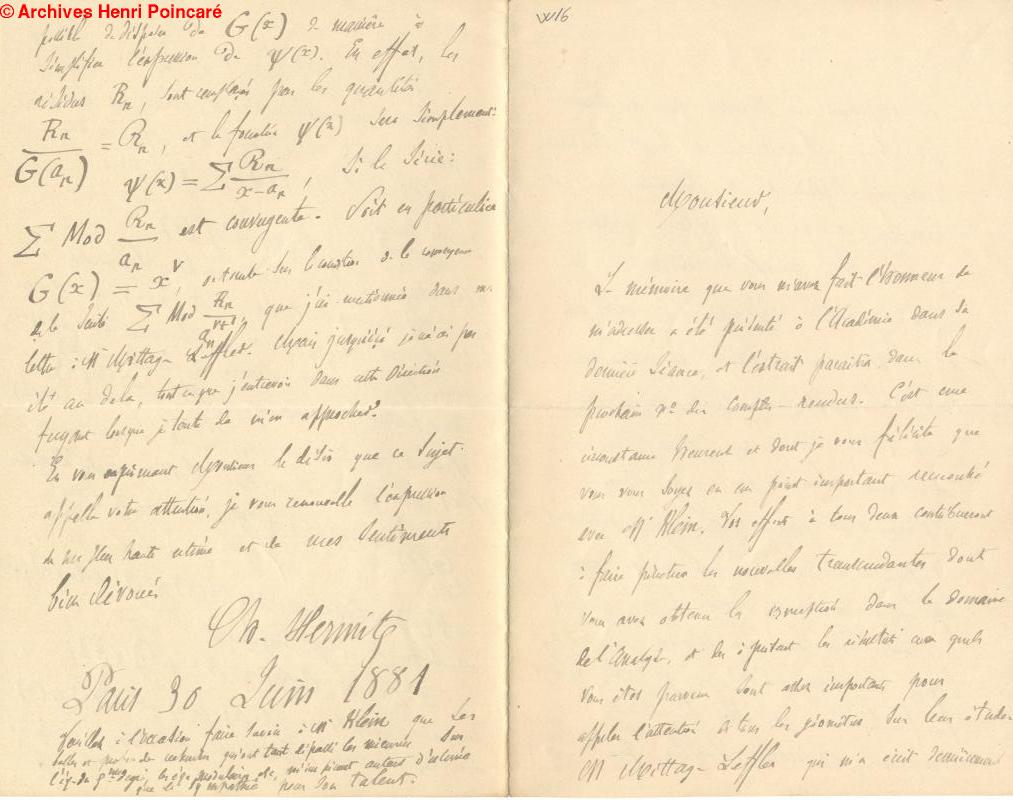 © Archives Henri Poincaré
possible de disposer de G(x) de manière à
simplifier l'expression de Ψ(x). En effet, les
résidus Rn, sont remplacés par les quantités
Rn/G(an) = ℛn, et la fonction Ψ(x) sera simplement:
Ψ(x) = Σ ℛn/(x-an), si la série:
Σ Mod ℛn/an est convergente. Soit en particulier
G(x) = x^ν, on tombe sur la condition de la convergence
de la suite Σ Mod Rn/an^(ν+1), que j'ai mentionnée dans ma
lettre à Mr Mittag-Leffler. Mais jusqu'ici je n'ai pas
été au delà, tout ce que j'entrevois dans cette direction
fuyant lorsque je tente de m'en approcher.
En vous exprimant Monsieur le désir que ce sujet
appelle votre attention, je vous renouvelle l'expression
de ma plus haute estime et de mes sentiments
bien dévoués
Ch. Hermite
Paris 30 Juin 1881
Veuillez à l'occasion faire savoir à Mr Klein que ses
belles et recherches qui ont tant dépassé les miennes sur
l'éq. du 5ème degré, les éq. modulaires etc, m'inspirent autant d'estime
que de sympathie pour son talent.
W16
Monsieur,
Le mémoire que vous m'avez fait l'honneur de
m'adresser a été présenté à l'Académie dans sa
dernière séance, et l'extrait paraîtra dans le
prochain no des Comptes-rendus. C'est une
circonstance heureuse et dont je vous félicite que
vous vous soyez en un point important rencontré
avec Mr Klein. Vos efforts à tous deux contribueront
à faire pénétrer les nouvelles transcendantes dont
vous avez obtenu la conception dans le domaine
de l'Analyse, et dès à présent les résultats auxquels
vous êtes parvenu sont assez importants pour
appeler l'attention de tous les géomètres sur leur étude.
Mr Mittag-Leffler qui m'a écrit dernièrement